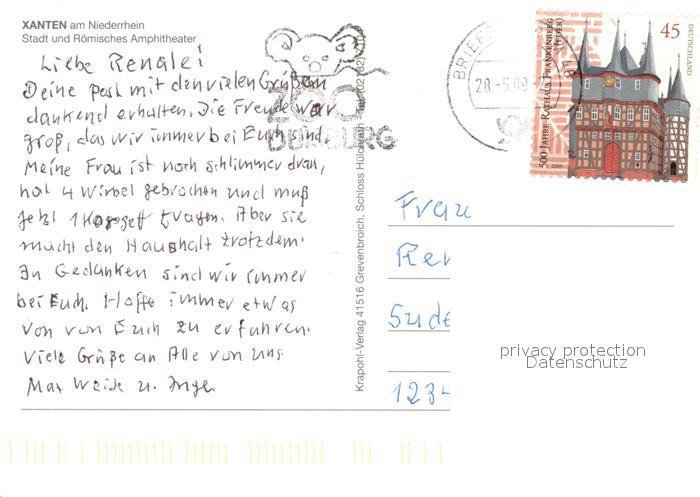 XANTEN am Niederrhein
Stadt und Römisches Amphitheater
Liebe Renate!
Deine Post mit den vielen Grüßen
dankend erhalten. Die Freude war
groß, das wir immer bei Euch sind.
Meine Frau ist noch schlimmer dran,
hat 4 Wirbel gebrochen und muß
jetzt 1 Korsett tragen. Aber sie
macht den Haushalt trotzdem.
In Gedanken sind wir immer
bei Euch. Hoffe immer etwas
von von Euch zu erfahren.
Viele Grüße an Alle von uns
Max Weide u. Inge
ZOO
DUISBURG
Krapohl-Verlag 41516 Grevenbroich, Schloss Hülchrath
BRIEFZ
48
28.-5.09
500 JAHRE RATHAUS FRANKENBERG
(EDER)
45
DEUTSCHLAND
Frau
Ren
Sude
1234
privacy protection
Datenschutz